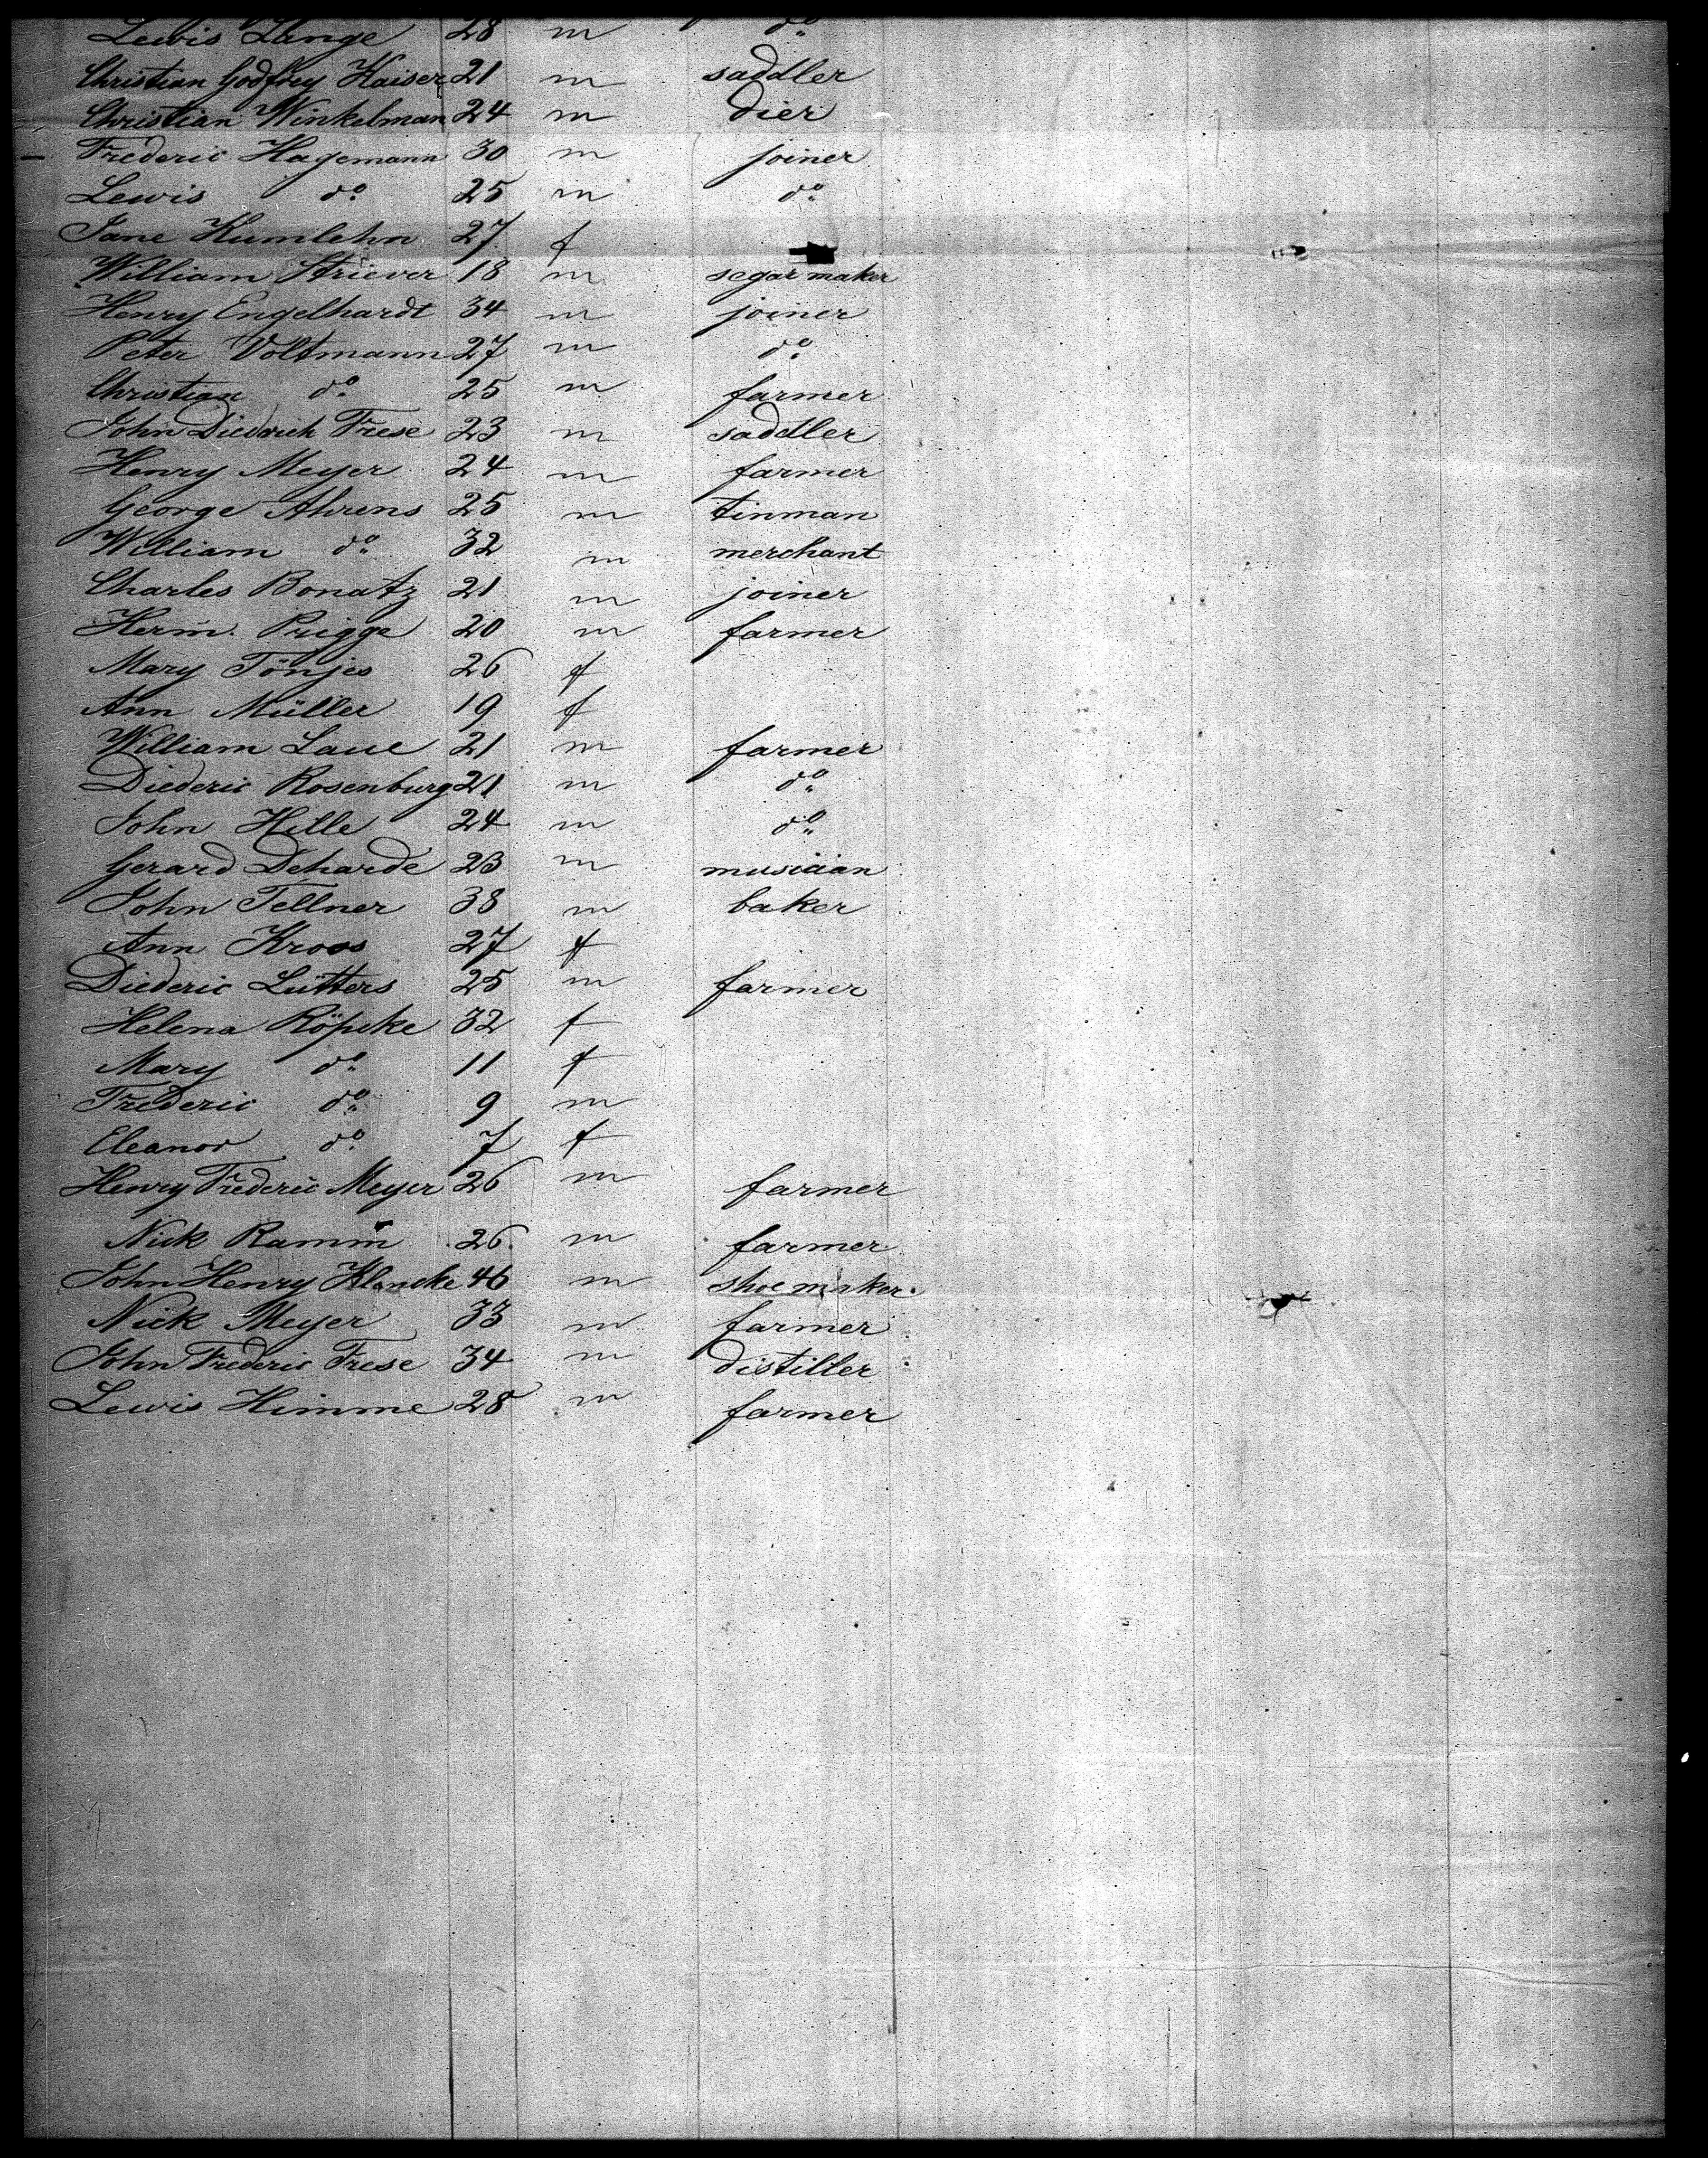 Lewis Lange 28 m do
Christian Godfrey Kaiser 21 m saddler
Christian Winkelman 24 m dier
Frederic Hagemann 30 m joiner
Lewis do 25 m do
Jane Kumlehn 27 f
William Striever 18 m segar maker
Henry Engelhardt 34 m joiner
Peter Voltmann 27 m do
Christian do 25 m farmer
John Diedrich Frese 23 m saddler
Henry Meyer 24 m farmer
George Ahrens 25 m tinman
William do 32 m merchant
Charles Bonatz 21 m joiner
Herm. Prigge 20 m farmer
Mary Tönjes 26 f
Ann Müller 19 f
William Laue 21 m farmer
Diederic Rosenburg 21 m do
John Hille 24 m do
Gerard Deharde 23 m musician
John Tellner 38 m baker
Ann Kroos 27 f
Diederic Lütters 25 m farmer
Helena Röpcke 32 f
Mary do 11 f
Frederic do 9 m
Eleanor do 7 f
Henry Frederic Meyer 26 m farmer
Nick Ramm 26 m farmer
John Henry Klancke 46 m shoe maker
Nick Meyer 33 m farmer
John Frederic Frese 34 m distiller
Lewis Himme 28 m farmer